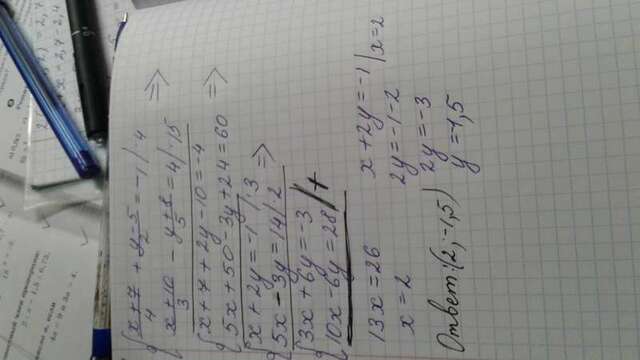 x+7/4 + y-5/2 = -1 | ·4
x+10/3 - y+8/5 = 4 | ·15 =>
x+7+2y-10=-4
5x+50-3y+24=60 =>
x+2y=-1 | ·3
5x-3y=14 | ·2 =>
3x+6y=-3
10x-6y=28 | +
13x=26
x=2
x+2y=-1 | x=2
2y=-1-2
2y=-3
y=-1,5
Ответ:(2;-1,5)